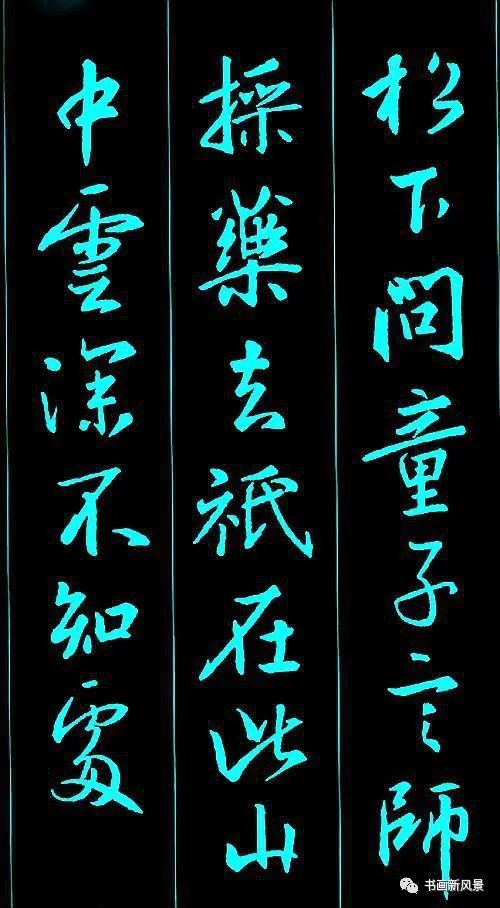 松下問童子言師
採藥去祇在此山
中雲深不知處
书画新风景